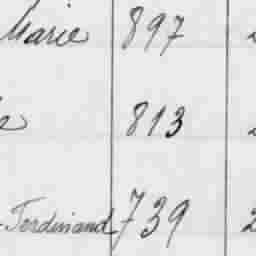 Marie 897
813
Ferdinand 739